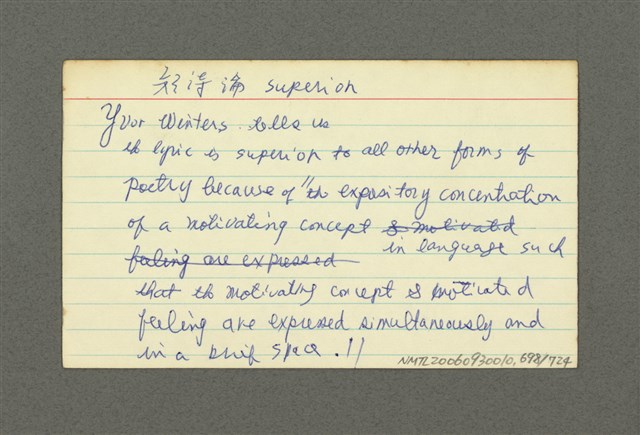 短詩論 superior
Yvor Winters tells us
th lyric is superior to all other forms of
poetry because of "th expository concentration
of a motivating concept & motivated
in language such
feeling are expressed
that th motivating concept & motivated
feeling are expressed simultaneously and
in a brief space."
NMTL20060930010, 698/724